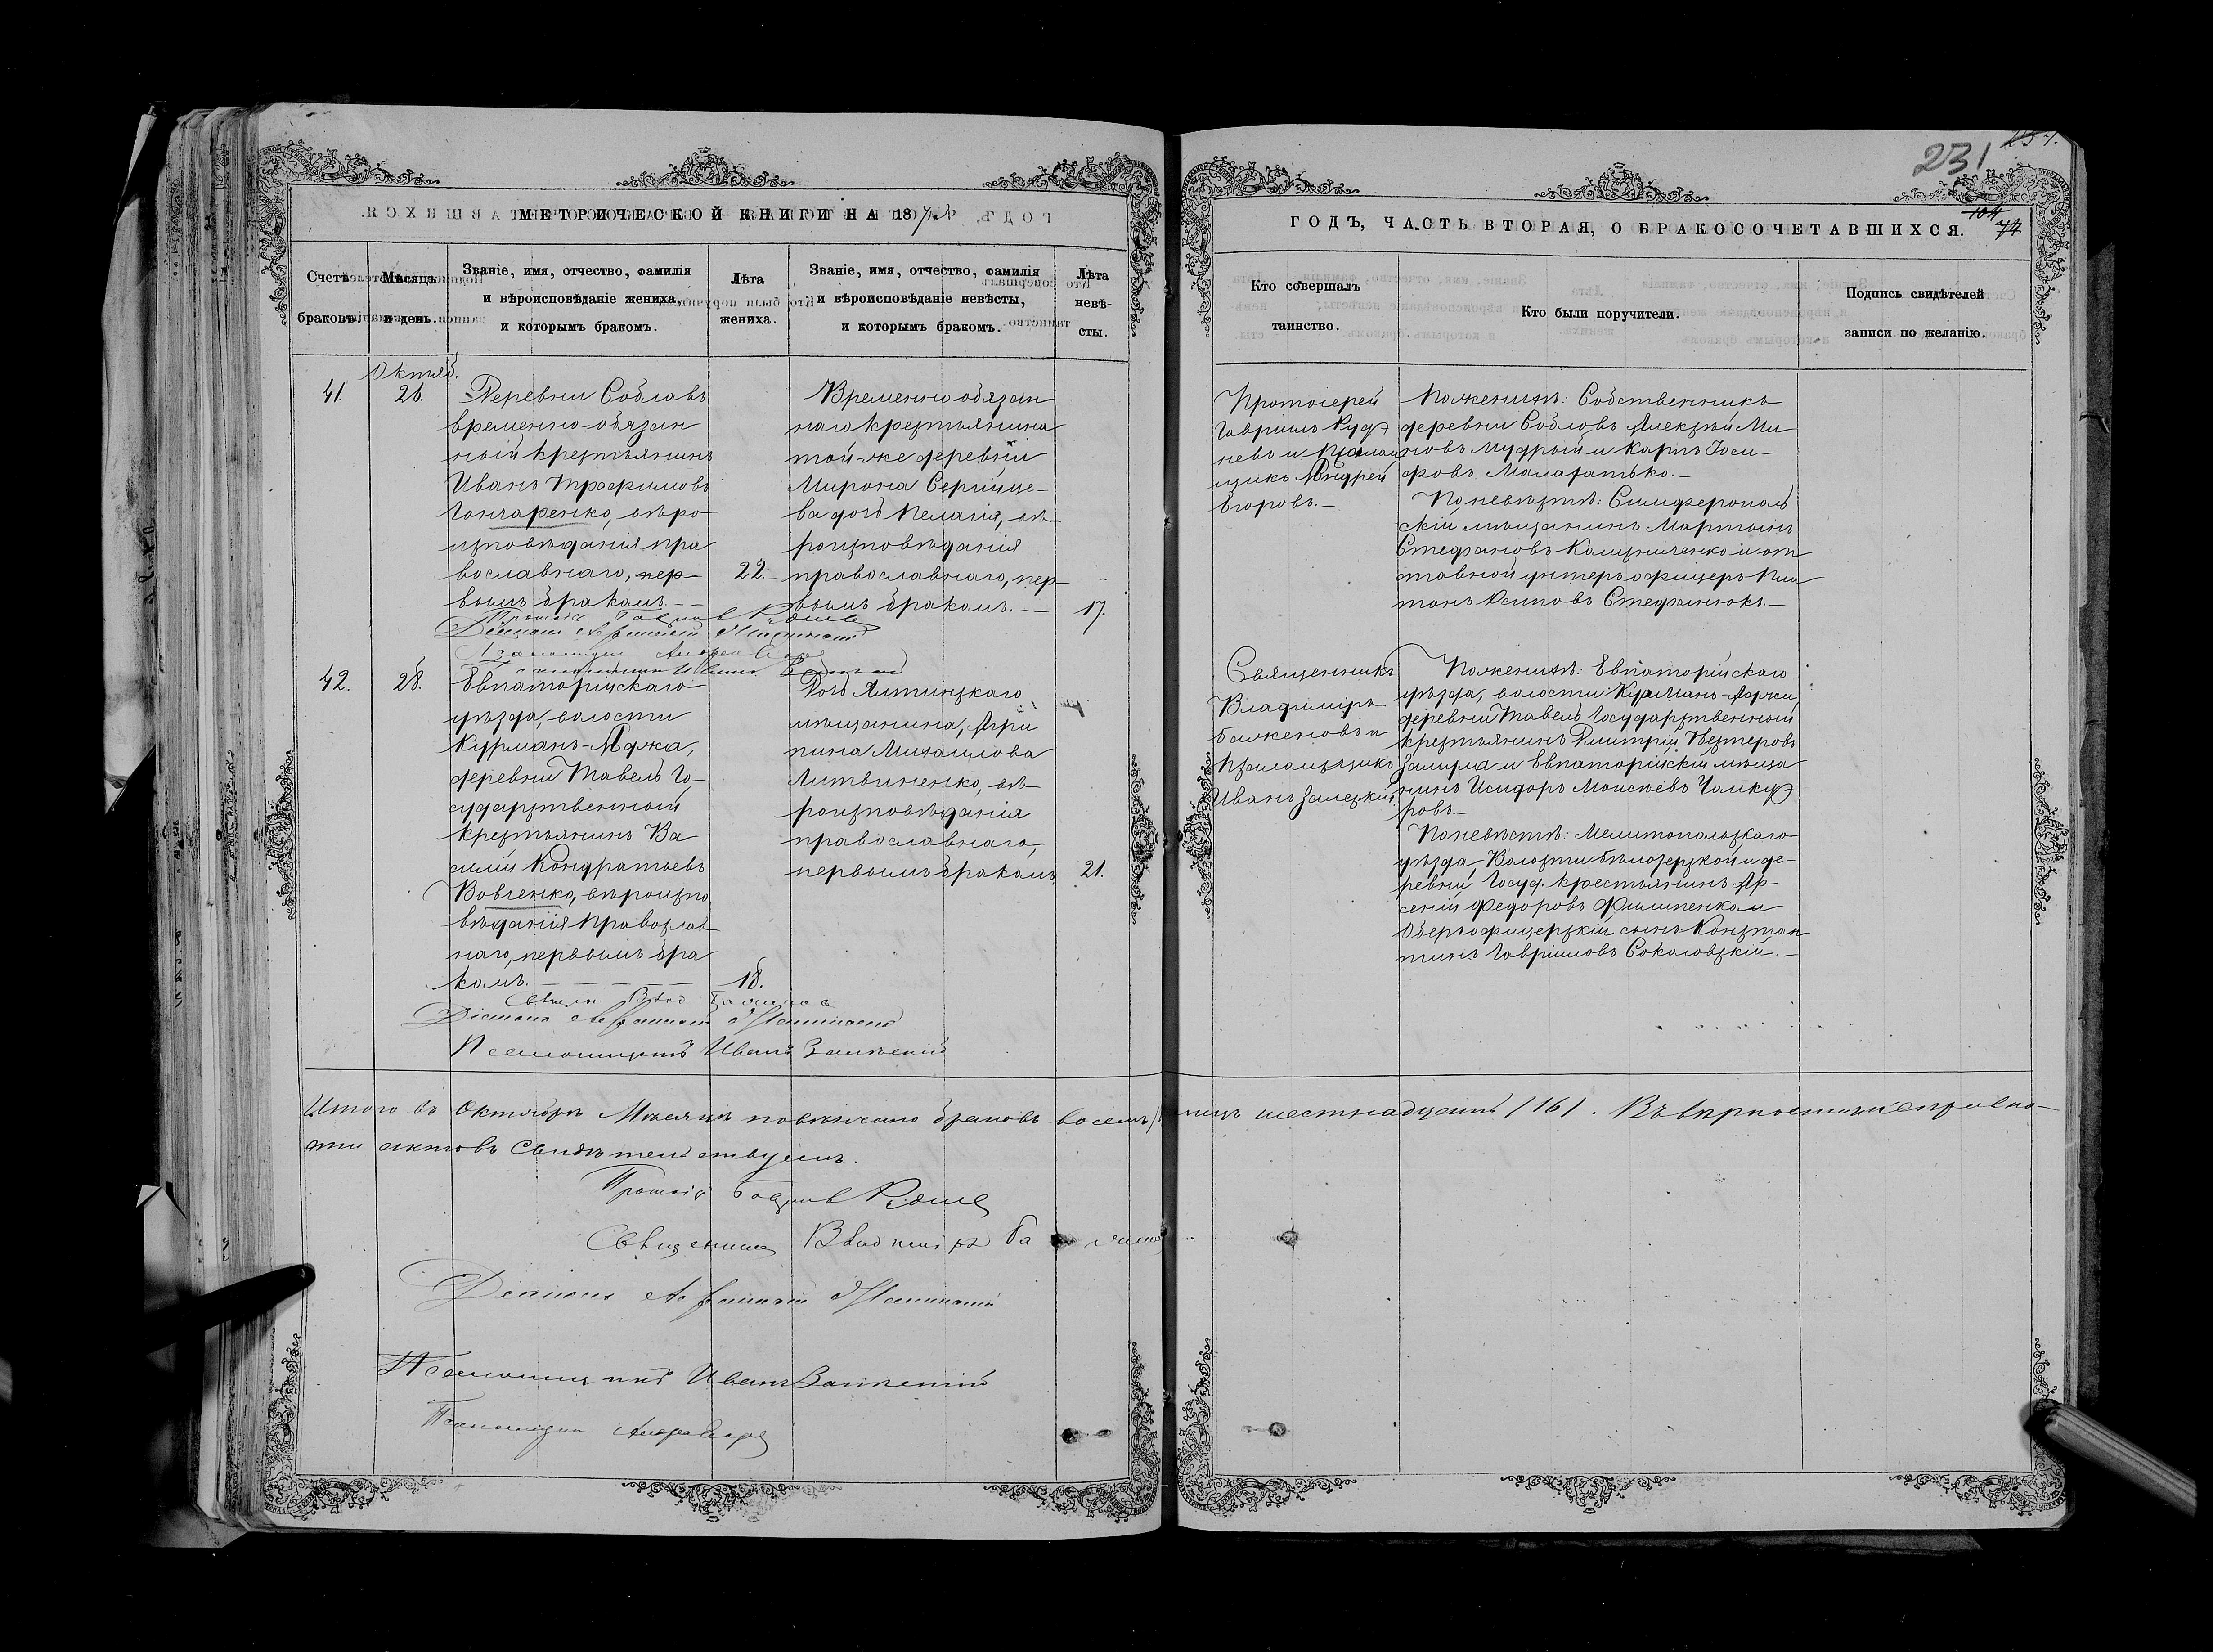 231
МЕТРИЧЕСКОЙ КНИГИ НА 187
ГОДЪ, ЧАСТЬ ВТОРАЯ, О БРАКОСОЧЕТАВШИХСЯ.
Счетъ браковъ.
Мѣсяцъ и день.
Званіе, имя, отчество, фамилія
и вѣроисповѣданіе жениха,
и которымъ бракомъ.
Лѣта
жениха.
Званіе, имя, отчество, фамилія
и вѣроисповѣданіе невѣсты,
и которымъ бракомъ.
Лѣта
невѣ-
сты.
Кто совершалъ
таинство.
Кто были поручители.
Подпись свидѣтелей
записи по желанію.
Октяб.
41.
26.
Деревни Соблавъ
временно-обязан
ный крестьянинъ
Иванъ Трофимовъ
Гончаренко, вѣро
исповѣданія пра
вославнаго, пер-
вымъ бракомъ. —
22.
Временно обязан
наго крестьянина
той-же деревни
Мирона Сергіце-
ва дочь Пелагія, вѣ
роисповѣданія
православнаго, пер-
вымъ бракомъ. —
17.
Протоіерей
Гавріилъ Руд
невъ и Псалом
щикъ Андрей
Егоровъ. —
По женихѣ: Собственникъ
деревни Соблавъ Алексѣй Ми
новъ Мудрый и Карпъ Іоси-
фовъ Малафатько. —
По невѣстѣ: Симферополь
скій мѣщанинъ Мартынъ
Стефановъ Калиниченко и от
ставной унтеръ офицеръ Пла
тонъ Осиповъ Стефанюкъ. —
Діаконъ
42.
28.
Евпаторійскаго
уѣзда, волости
Курманъ-Аджа,
деревни Тавель Го-
сударственный
крестьянинъ Ва
силій Кондратьевъ
Вовченко, вѣроиспо
вѣданія православ
наго, первымъ бра
комъ. — — — —
18.
Дочь Ялтинскаго
мѣщанина, Агри
пина Михаилова
Литвиненко, вѣ
роисповѣданія
православнаго,
первымъ бракомъ,
21.
Священникъ
Владиміръ
Баженовъ и
Псаломщикъ
Иванъ Залескій.
По женихѣ: Евпаторійскаго
уѣзда, волости Курманъ-Аджи,
деревни Тавель Государственный
крестьянинъ Дмитрій Нестеровъ
Залида и Евпаторійскій мѣща
нинъ Исидоръ Моисѣевъ
ровъ. —
По невѣстѣ: Мелитопольскаго
уѣзда, Волости Бѣлозерской и де-
ревни Госуд. крестьянинъ Ар-
сеній Федоровъ Филипенко и
Оберъ офицерскій сынъ Констан
тинъ Гавріиловъ Соколовскій. —
Діаконъ
Псаломщикъ Иванъ Залескій
Итого въ Октябрѣ Мѣсяцѣ повѣнчано браковъ восемь лицъ шестнадцать /16/. Въ вѣрности и исправно-
сти актовъ свидѣтельствуемъ.
Протоіе Гавріилъ Руднев
Священникъ Владиміръ Баженовъ
Діаконъ
Псаломщикъ Иванъ Залескій
Псаломщикъ Андрей Егоров